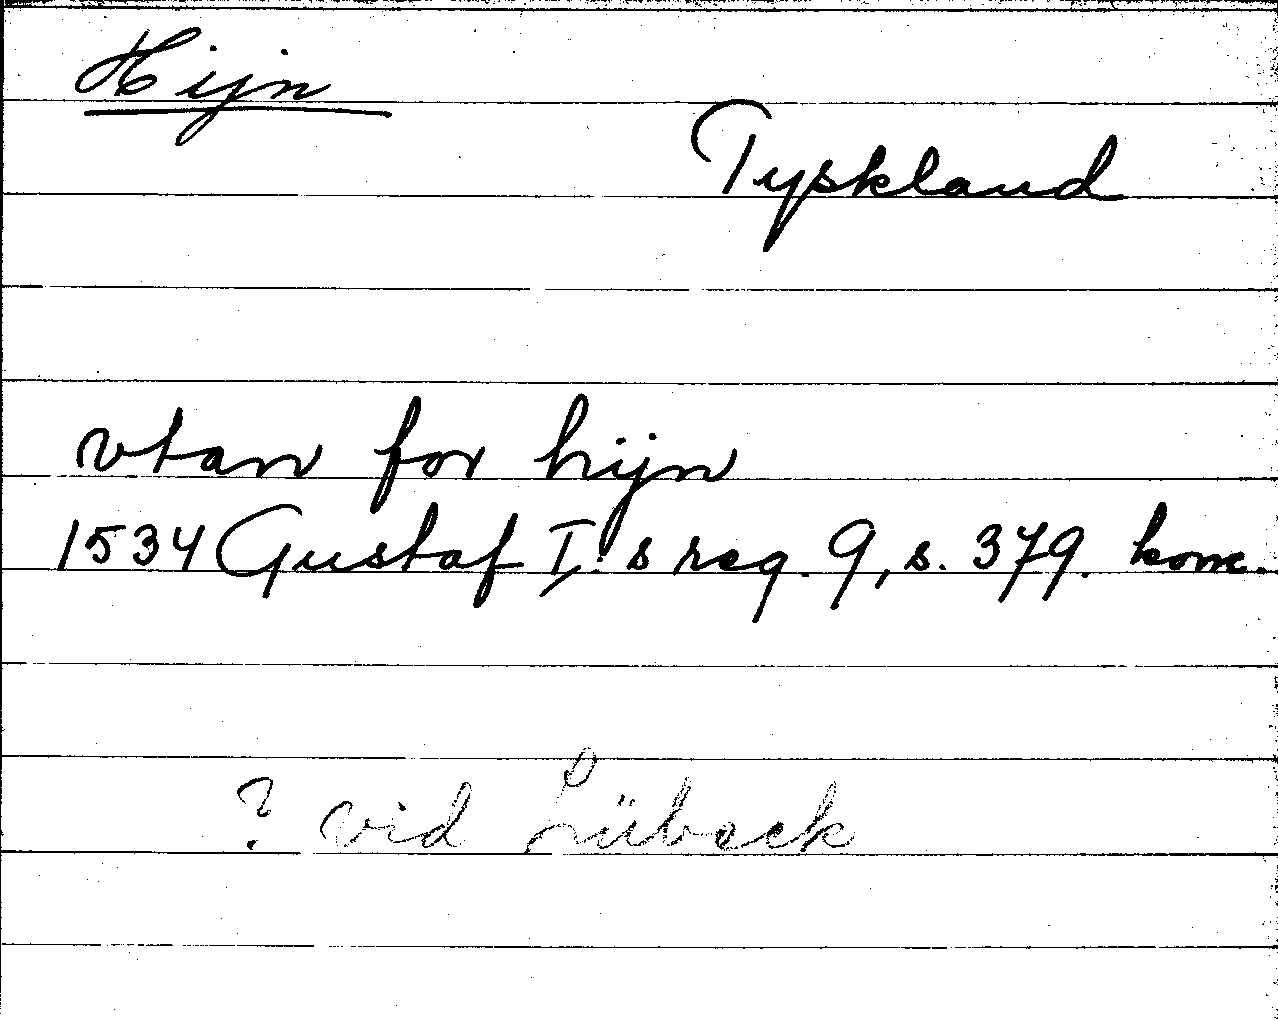 Hijn
Tyskland
vtan for hijn
1534 Gustaf I:s reg. 9, s. 379. konc.
? vid Lübeck